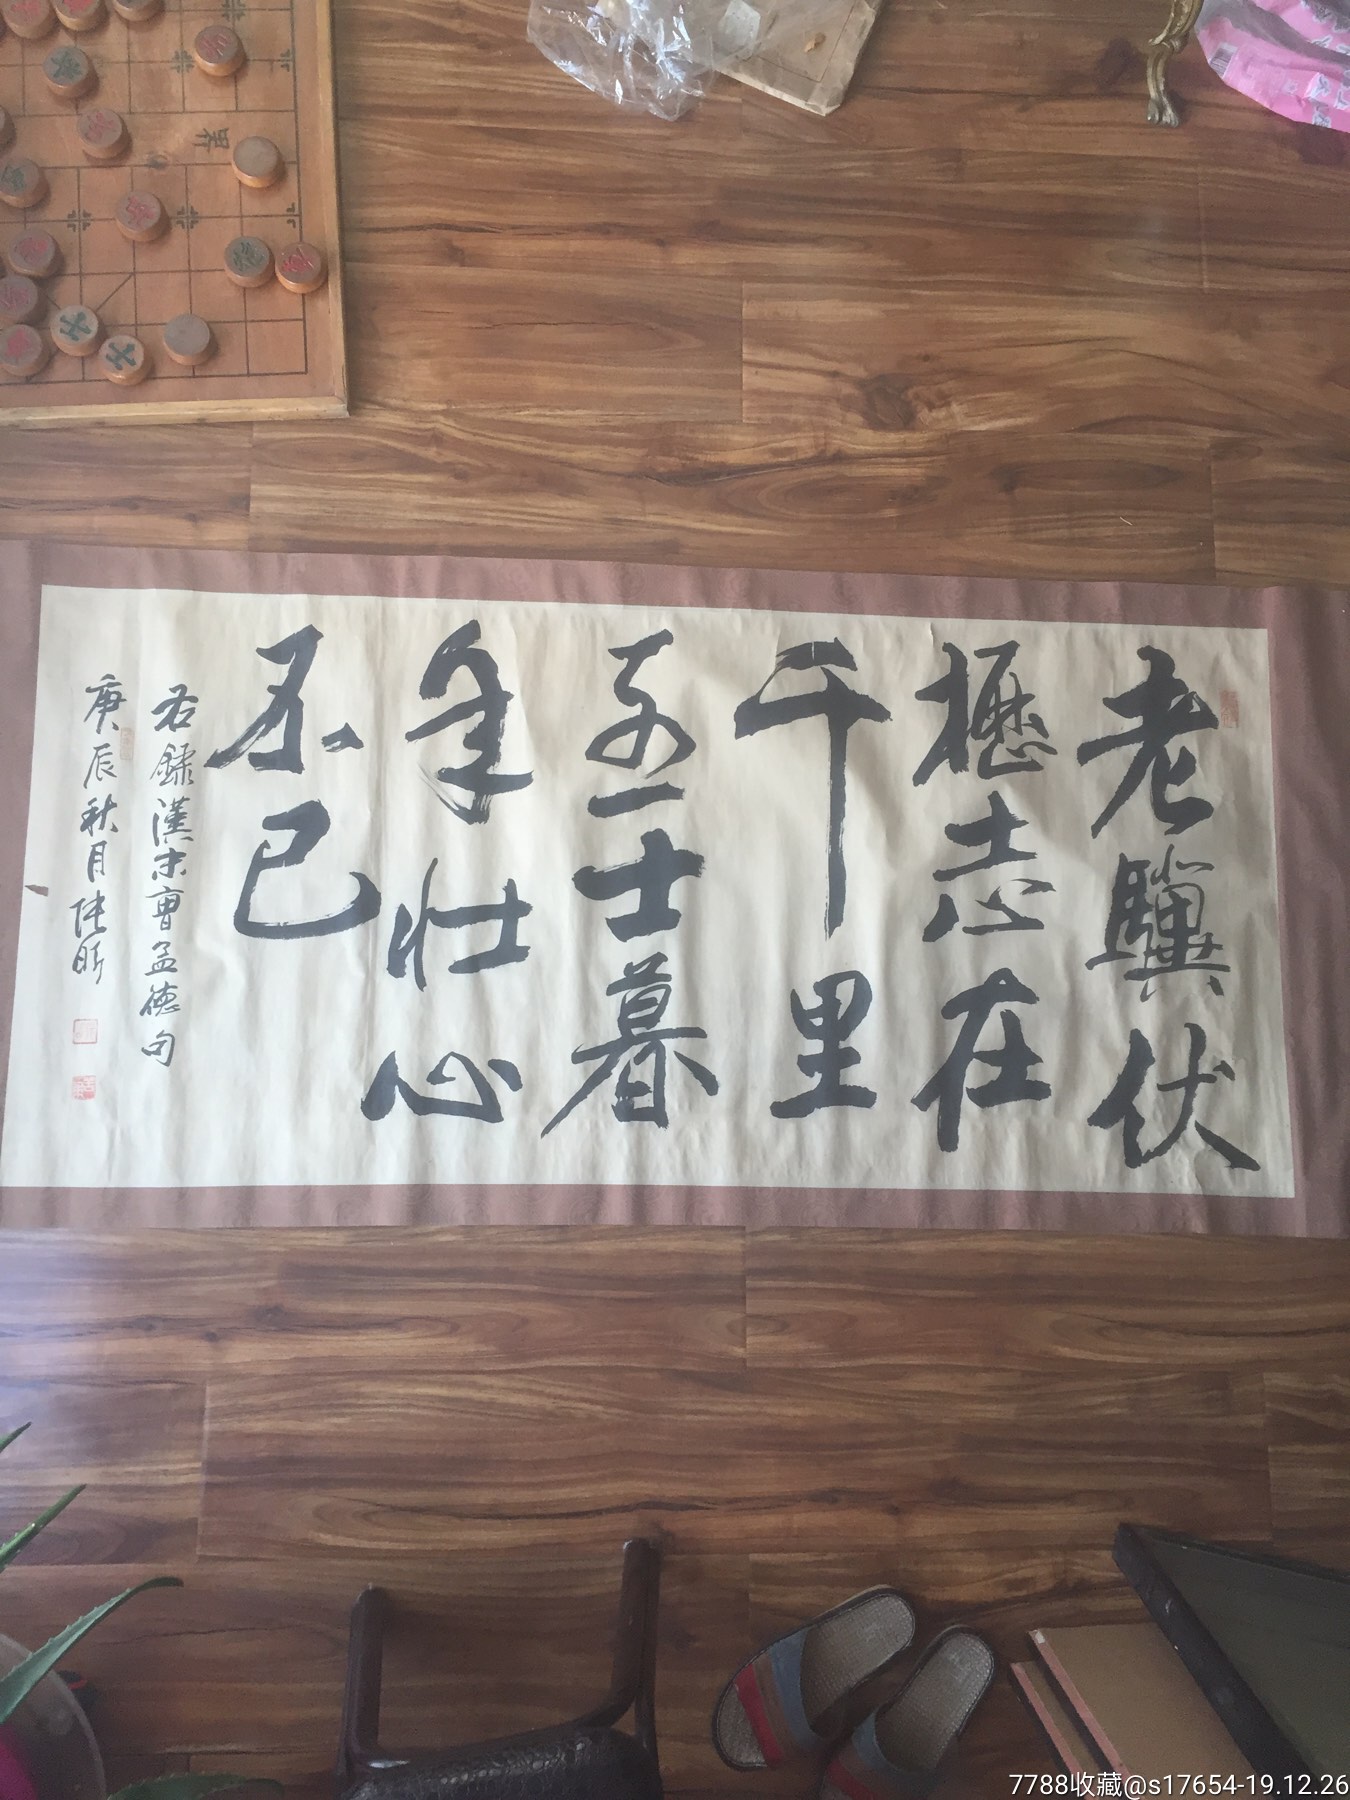 界
老驥伏
櫪志在
千里
烈士暮
年壮心
不已
右録漢末曹孟德句
庚辰秋月
7788收藏@s17654-19.12.26